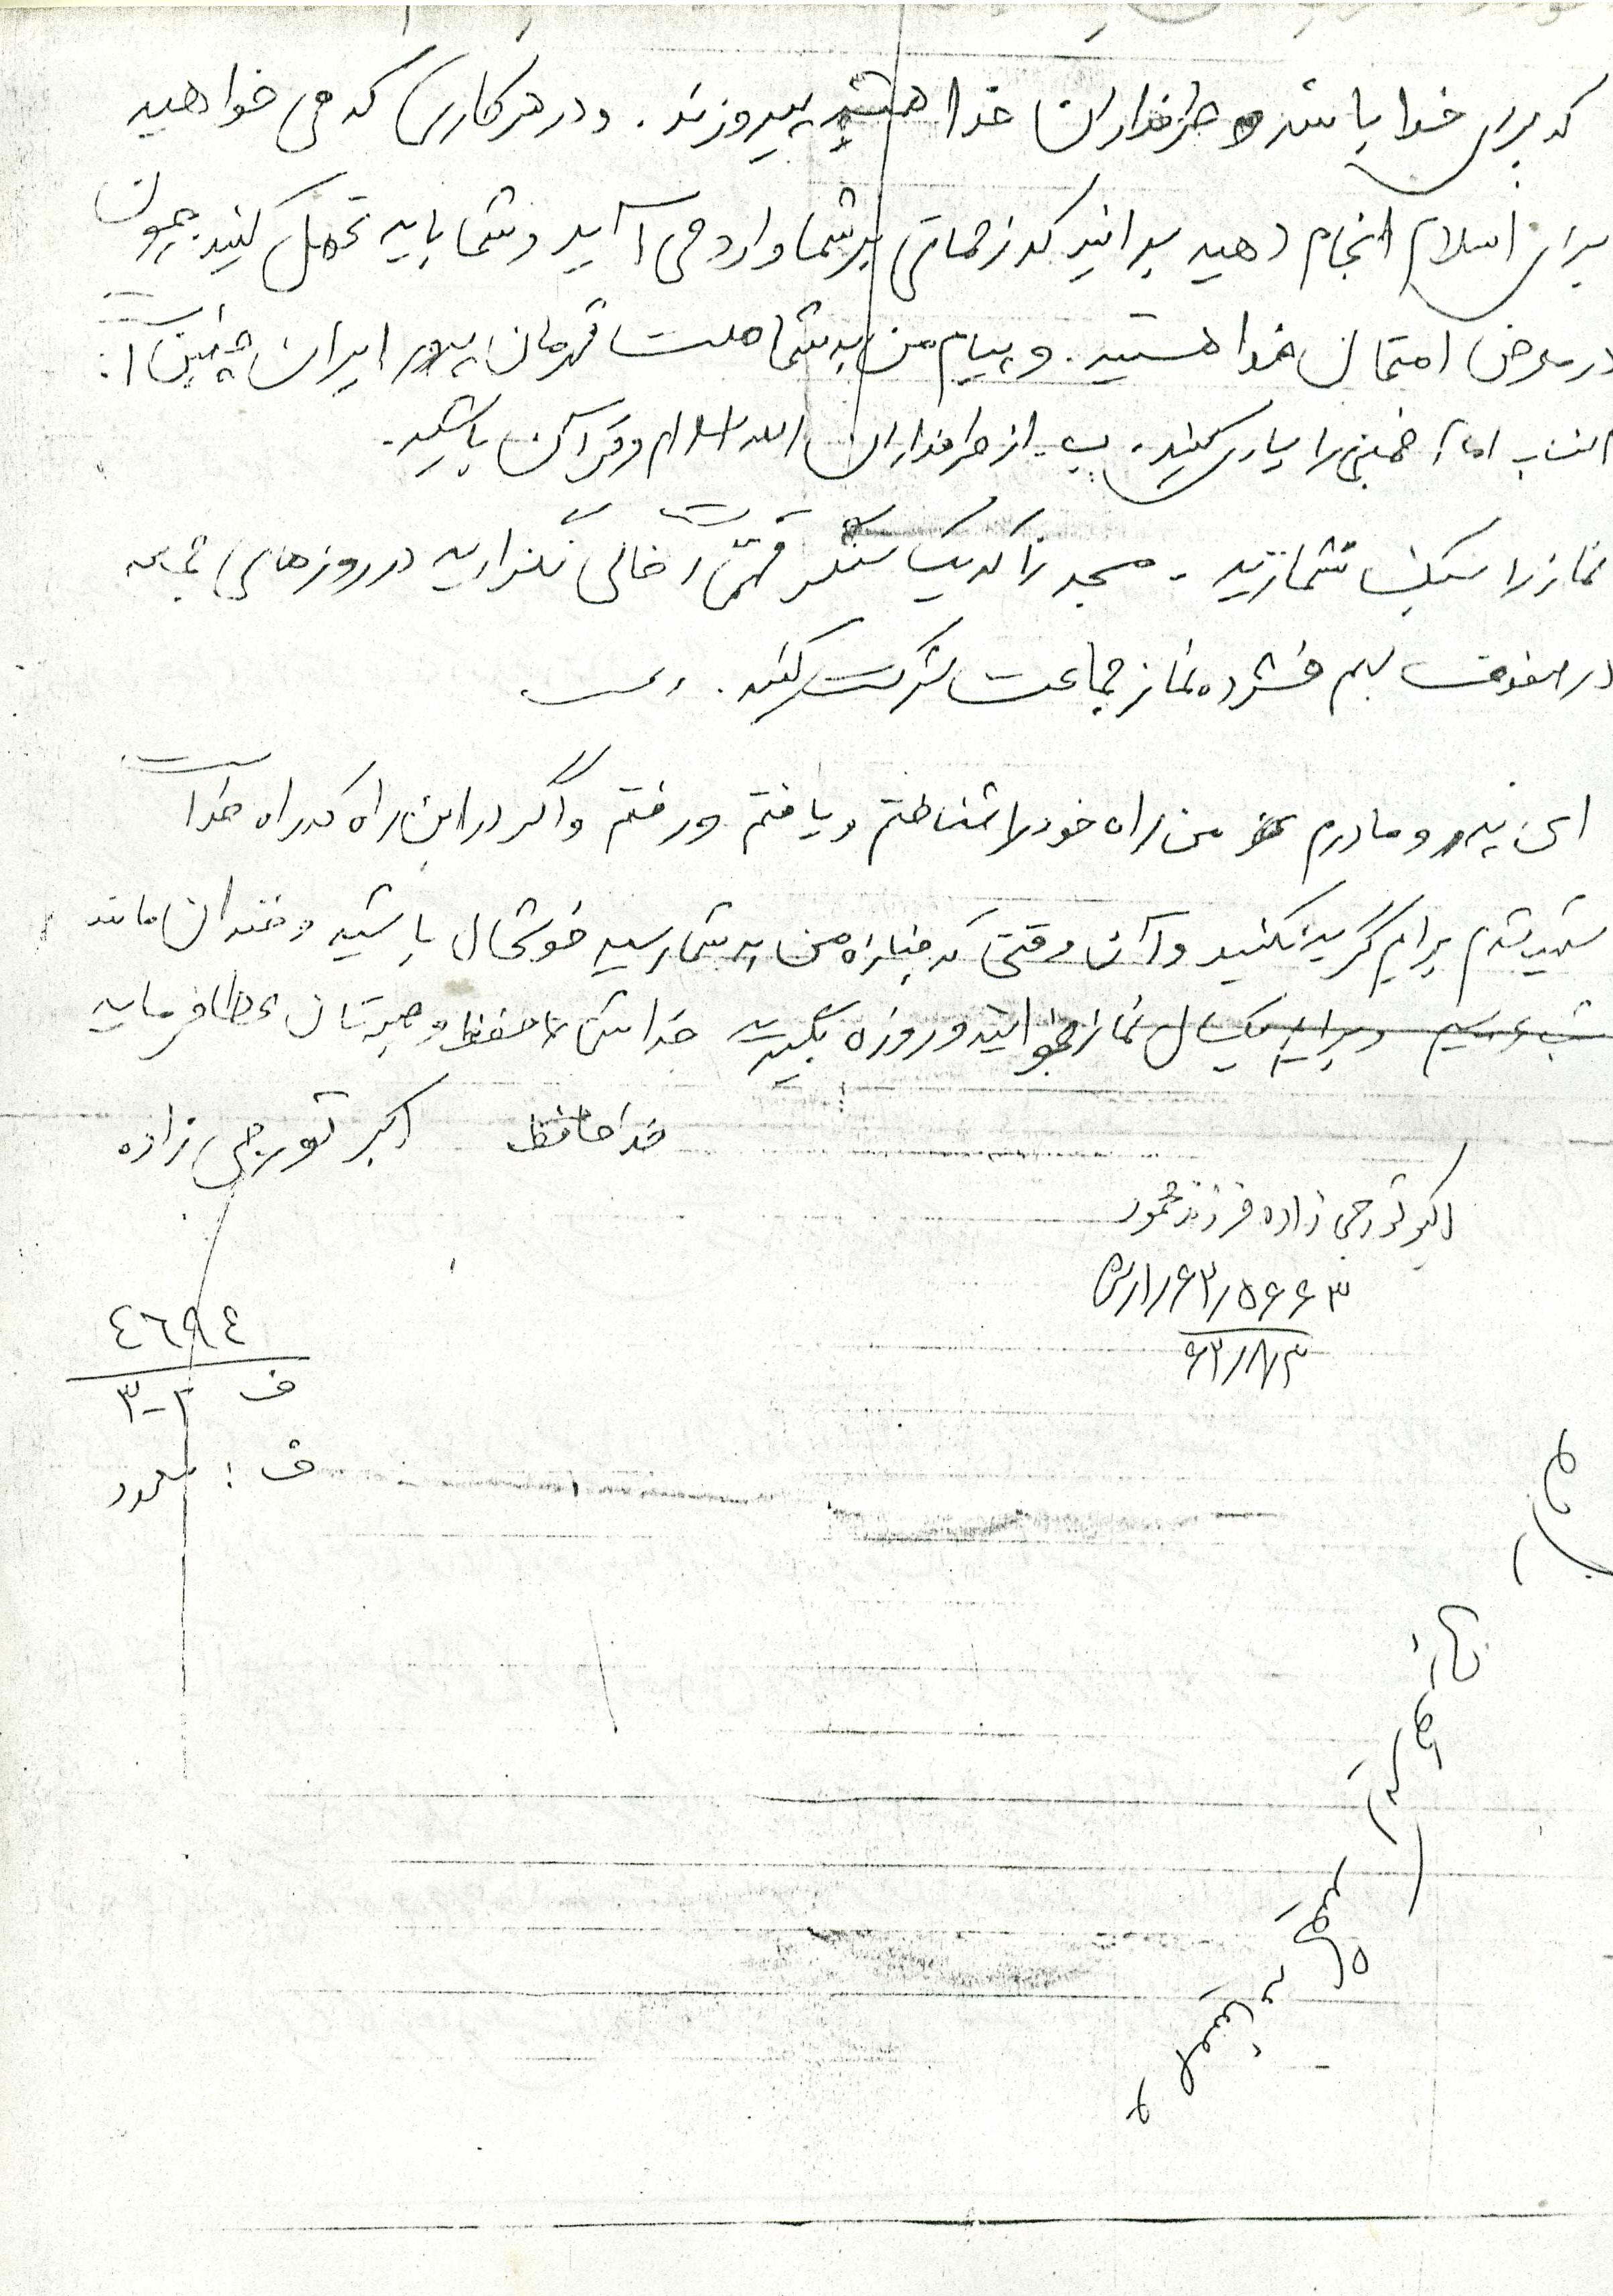 که برای خدا باشد و طرفداران خدا هستند پیروزند. و در هر کاری که می خواهید
برای اسلام انجام دهید بدانید که زحماتی بر شما وارد می آید و شما باید تحمل کنید چون
در معرض امتحان خدا هستید. و پیام من به شما ملت قهرمان پرور ایران چنین است:
الف ـ امام خمینی را یاری کنید. ب ـ از طرفداران الله اسلام و قرآن باشید.
نماز را سبک نشمارید ـ مسجد را که یک سنگر قهری است خالی نگذارید در روزهای جمعه
در صفوف بهم فشرده نماز جماعت شرکت کنید.
ای پدر و مادرم من راه خود را شناختم و یافتم و رفتم و اگر در این راه که راه خدا است
شهید شدم برایم گریه نکنید و آن وقتی که جنازه من به شما رسید خوشحال باشید و خندان مانند
شب عروسیم و برایم یکسال نماز بخوانید و روزه بگیرید خدا شما را حفظ و صبرتان عطا فرماید
خداحافظ اکبر تورجی زاده
اکبر تورجی زاده فرزند محمود
۶۲/۵۶۶۳/ارش
۶۲/۸/۳
٤٦٩٤
ف ۲-۳
ف: